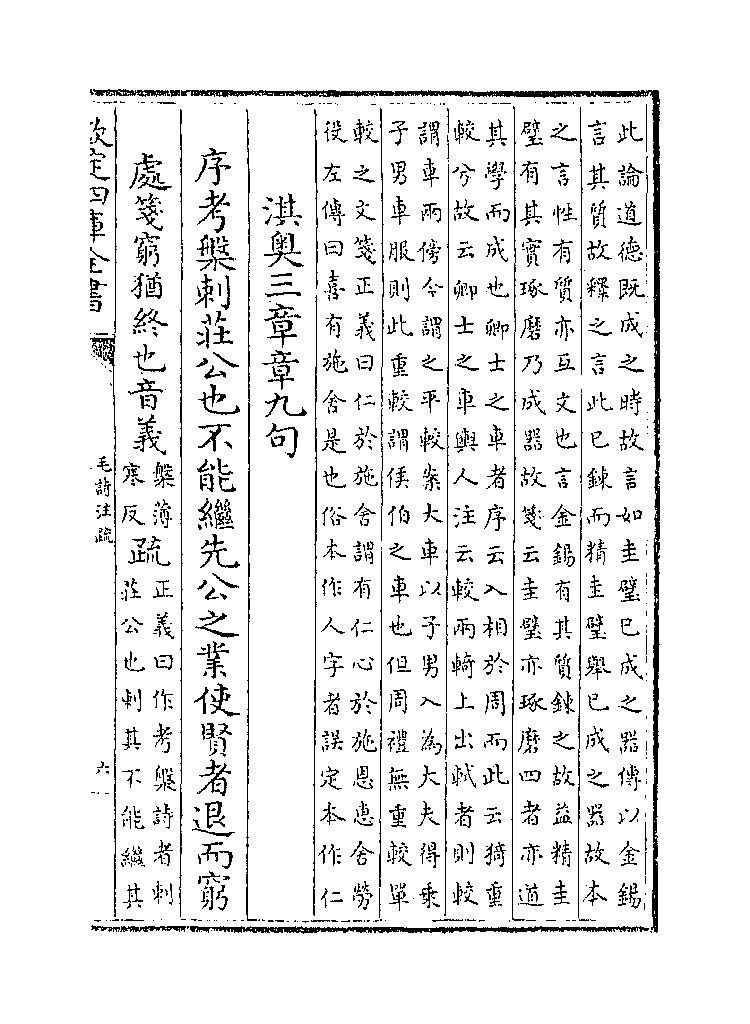 此論道德既成之時故言如圭璧已成之器傳以金錫
言其質故釋之言此已鍊而精圭璧舉已成之器故本
之言性有質亦互文也言金錫有其質鍊之故益精圭
璧有其實琢磨乃成器故箋云圭璧亦琢磨四者亦道
其學而成也卿士之車者序云入相於周而此云猗重
較兮故云卿士之車輿人注云較兩輢上出軾者則較
謂車兩傍今謂之平較案大車以子男入為大夫得乗
子男車服則此重較謂侯伯之車也但周禮無重較單
較之文箋正義曰仁於施舍謂有仁心於施恩惠舍勞
役左傳曰喜有施舍是也俗本作人字者誤定本作仁
淇奥三章章九句
序考槃刺莊公也不能繼先公之業使賢者退而窮
處箋窮猶終也音義槃薄
寒反疏正義曰作考槃詩者刺
莊公也刺其不能繼其
欽定四庫全書
毛詩注疏
六